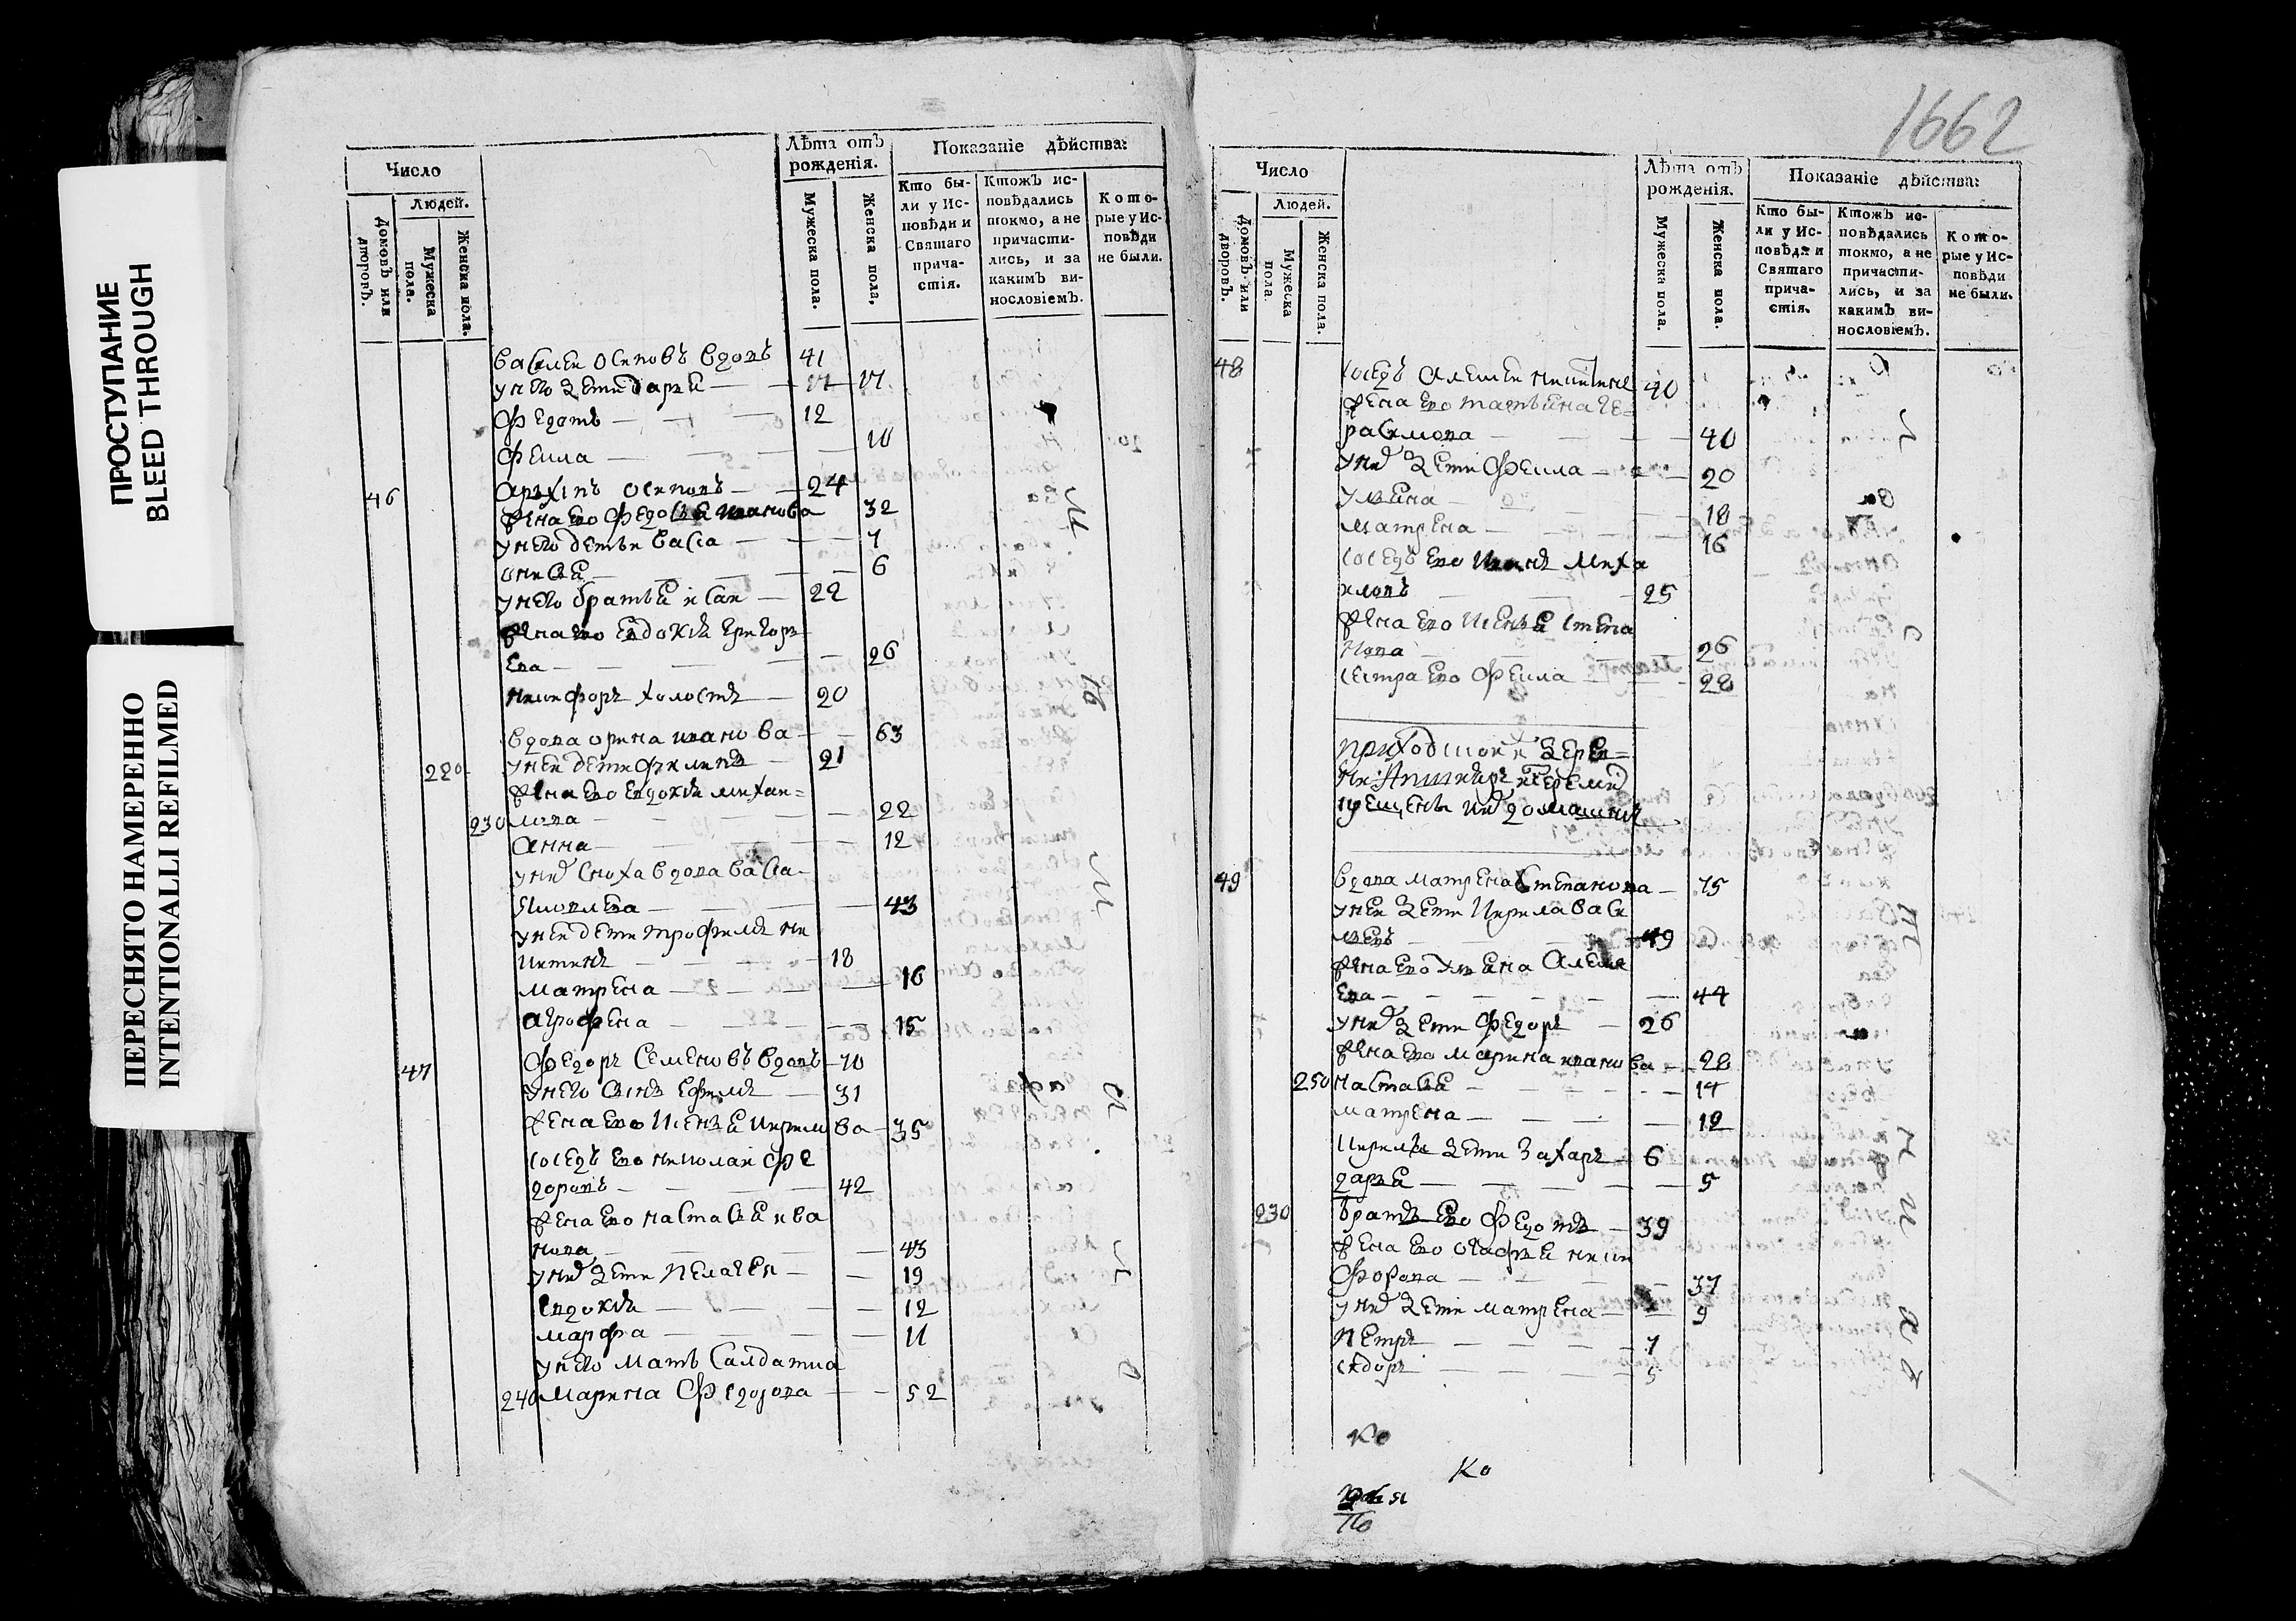 ПРОСТУПАНИЕ
BLEED THROUGH
ПЕРЕСНЯТО НАМЕРЕННО
INTENTIONALLI REFILMED
Число
Людей.
Домовъ или дворовъ.
Мужеска пола.
Женска пола.
Лѣта отъ рожденія.
Мужеска пола.
Женска пола,
Показаніе дѣйства:
Кто бы-
ли у Ис-
повѣди и
Святаго
прича-
стія.
Ктожъ ис-
повѣдались
токмо, а не
причасти-
лись, и за
какимъ ви-
нословіемъ.
Кото-
рые у Ис-
повѣди
не были.
василеи осиповъ вдовъ 41
у него дети дарья 17
Федотъ 12
фекла 10
46 архипъ осиповъ 24
жена ево федосья иванова 32
у него дети васса 7
онисья 6
у него братья исаи 22
жена ево евдокия григорь
ева 26
никифоръ холостъ 20
вдова орина иванова 63
220 у неи дети филипъ 21
жена ево евдокия михаи=
230 лова 22
анна 12
у них сноха вдова васса
яковлева 43
у неи дети трофимъ ни
китинъ 18
матрена 16
агрофена 15
47 Федоръ Семеновъ вдовъ 70
у него сынъ ефимъ 31
жена ево ксенья кирилова 35
соседъ ево николаи фе
доровъ 42
жена ево настасья ива
нова 43
у них дети пелагея 19
евдокия 12
марфа 11
у него мать салдатка
240 марина Федорова 52
1662
Число
Людей.
Домовъ или дворовъ.
Мужеска пола.
Женска пола.
Лѣта отъ рожденія.
Мужеска пола.
Женска пола.
Показаніе дѣйства:
Кто бы-
ли у Ис-
повѣди и
Святаго
прича-
стія.
Ктожъ ис-
повѣдались
токмо, а не
причасти-
лись, и за
какимъ ви-
нословіемъ.
Кото-
рые у Ис-
повѣди
не были.
48 соседъ алексеи никитинъ 40
жена ево татьяна ге=
расимова 40
у них дети Фекла 20
ульяна 18
матрена 16
соседъ ево иванъ миха
иловъ 25
жена ево ксенья степа
нова 26
сестра ево фекла 28
приходскои дерев=
ни
крещены их домашния
49 вдова матрена степанова 75
у неи дети кирила васи
льевъ 49
жена ево ульяна алексе
ева 44
у них дети федоръ 26
жена ево марина иванова 28
250 настасья 14
матрена 12
кирилы дети захаръ 6
дарья 5
230 братъ ево федотъ 39
жена ево агафья ники
форова 37
у них дети матрена 9
петръ 7
сидоръ 5
Ко
Ко
По